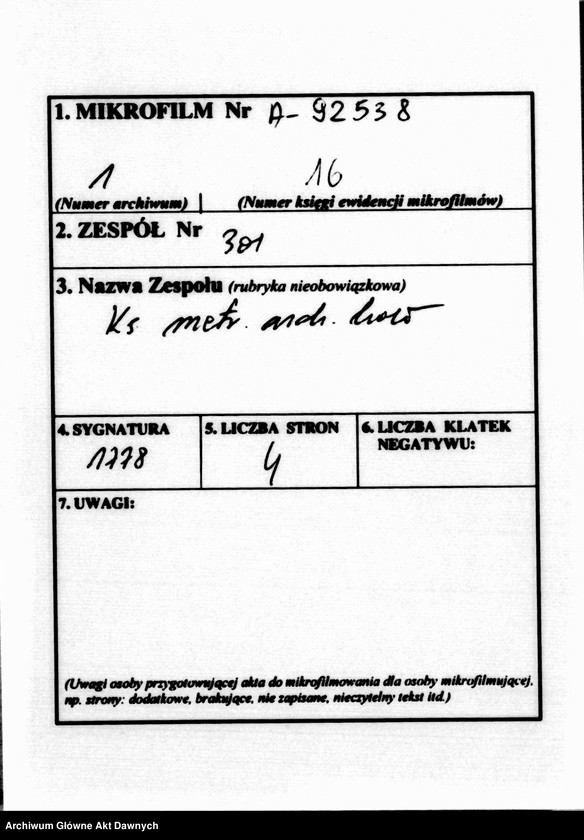 1. MIKROFILM Nr A-92538
1 16
(Numer archiwum) (Numer księgi ewidencji mikrofilmów)
2. ZESPÓŁ Nr 301
3. Nazwa Zespołu (rubryka nieobowiązkowa)
Ks metr. arch.
4. SYGNATURA 5. LICZBA STRON 6. LICZBA KLATEK
NEGATYWU:
1778 4
7. UWAGI:
(Uwagi osoby przygotowującej akta do mikrofilmowania dla osoby mikrofilmującej,
np. strony: dodatkowe, brakujące, nie zapisane, nieczytelny tekst itd.)
Archiwum Główne Akt Dawnych